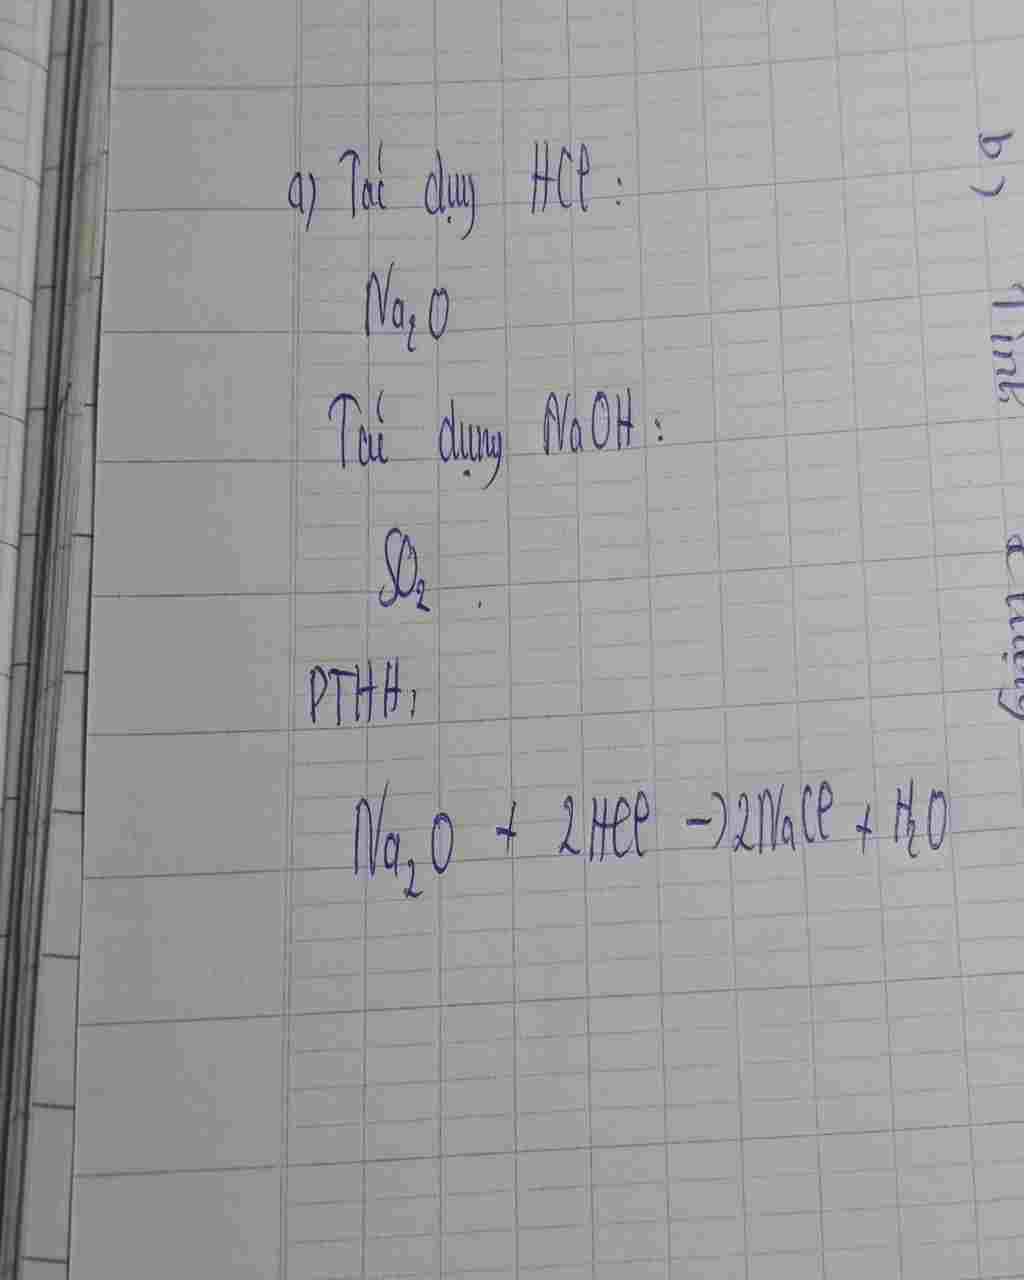 a) Tác dụng HCl:
Na₂O
Tác dụng NaOH:
SO₂.
PTHH:
Na₂O + 2HCl → 2NaCl + H₂O
b)
Tính